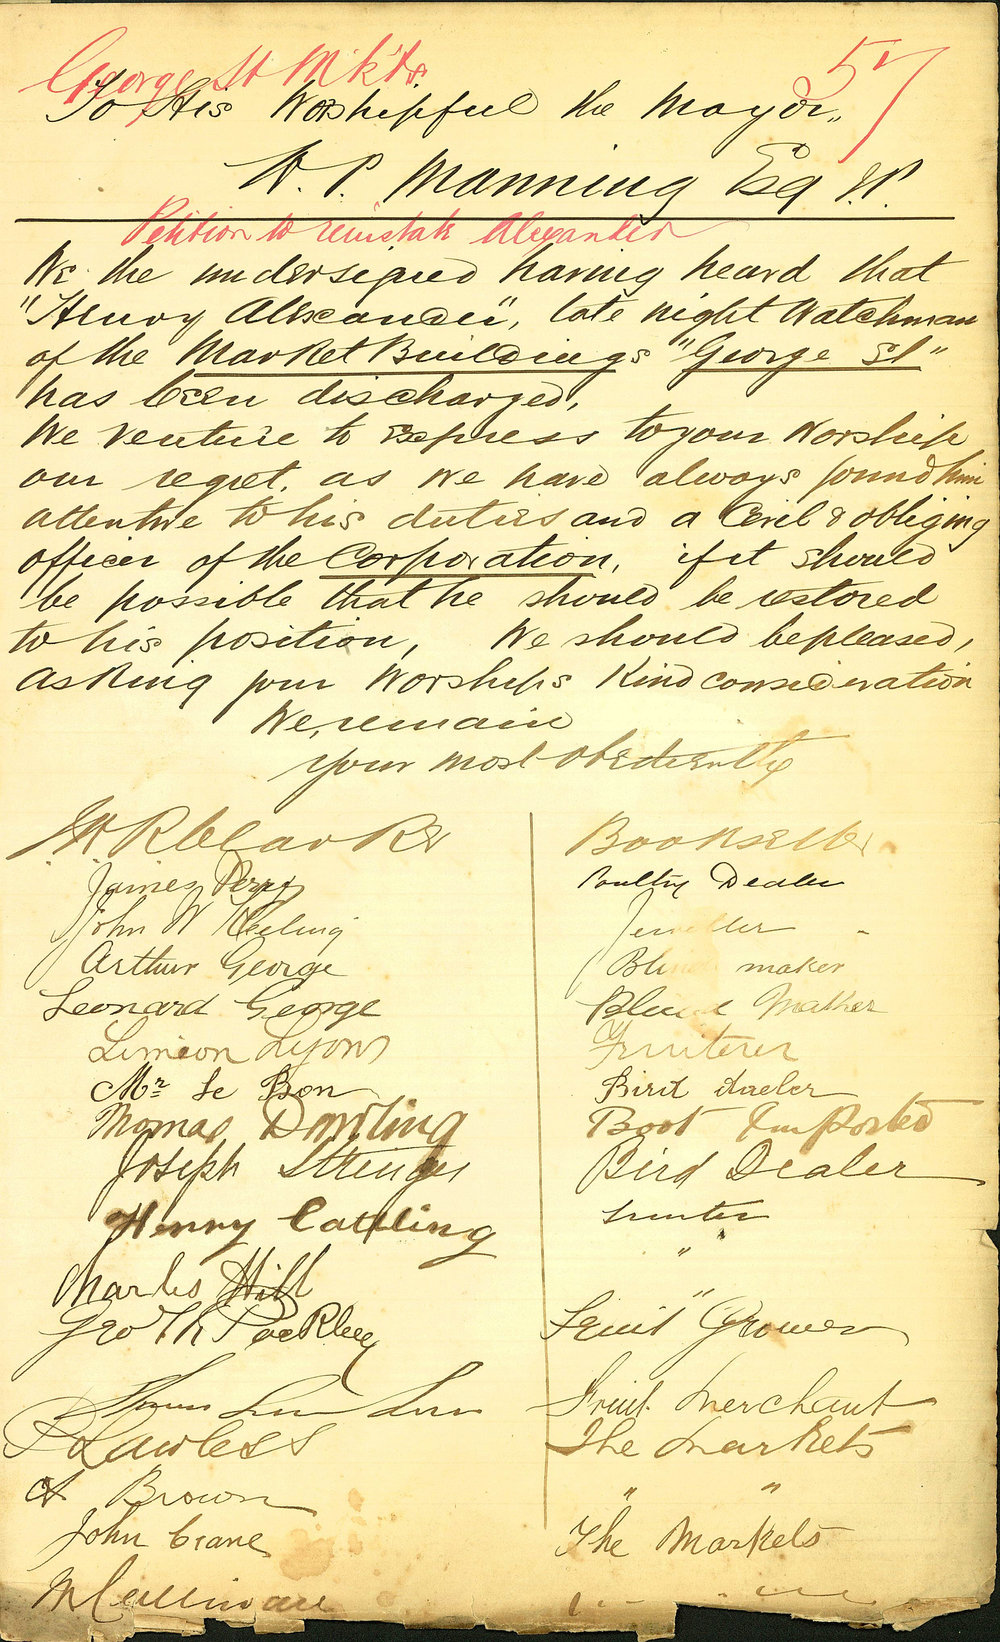 George St Mkts
57
To His Worshipful the Mayor,,
W. P. Manning Esq J.P.
Petition to reinstate Alexander
We the undersigned having heard that
"Henry Alexander", late night Watchman
of the Market Buildings "George St"
has been discharged,
We venture to express to your Worship
our regret, as we have always found him
attentive to his duties and a Civil & obliging
officer of the Corporation, if it should
be possible that he should be restored
to his position, We should be pleased,
asking your Worships Kind consideration
We, remain
your most obediently
R Clarke Bookseller
James Perry Poultry Dealer
John W Keeling Jeweller
Arthur George Blind maker
Leonard George Blind Mather
Simeon Lyons Fruiterer
Mr Le Bon Bird daeler
Thomas Dowling Boot Imported
Joseph Stringer Bird Dealer
Henry Catling "
Charles Hill "
Geo Th Fruit Grower
Fruit Merchant
P Lawless The Markets
A Brown " "
John Crane The Markets
M Cullinane " "